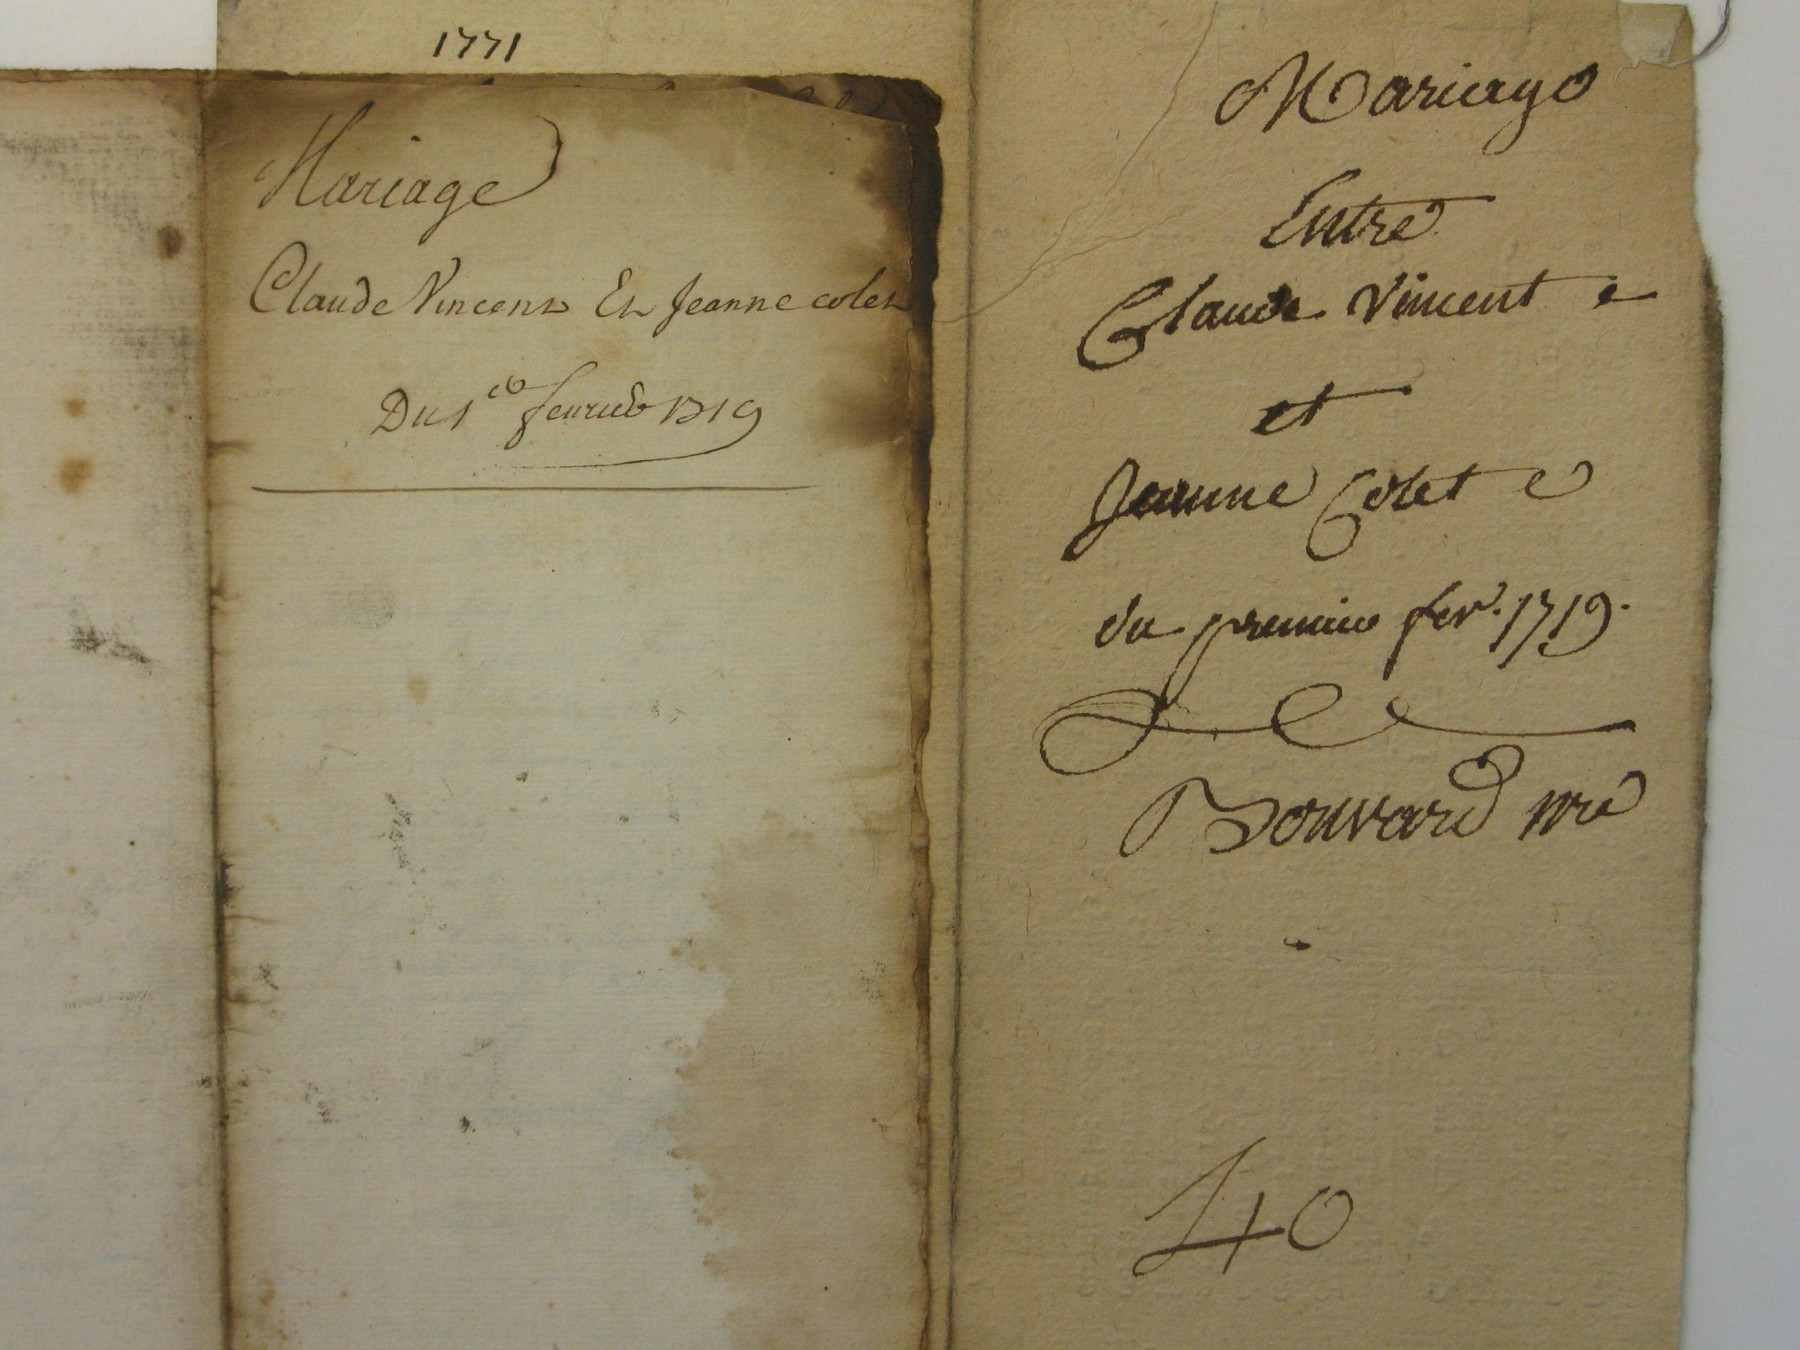 1771
Mariage
Claude Vincent Et Jeanne colet
Du 1er feurier 1719
Mariage
Entre
Claude Vincent
et
Jeanne Colet
du premier fevr. 1719.
Bouvard nre
40